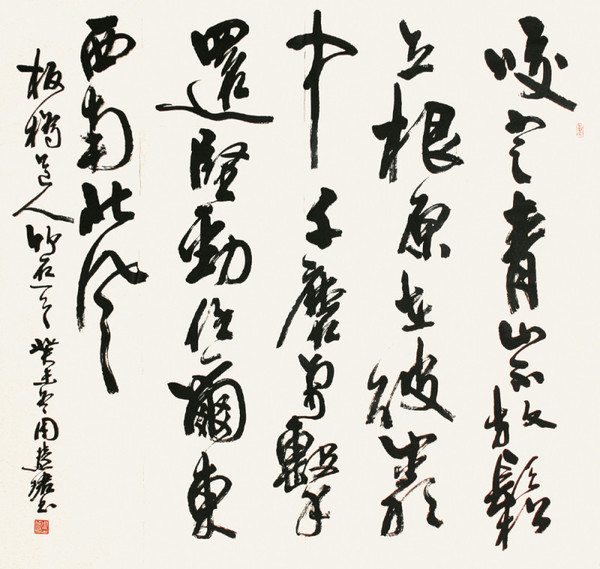 咬定青山不放鬆
立根原在破巖
中千磨萬擊
還堅勁任爾東
西南北風
板橋道人竹石一首 癸未冬周慧珺書